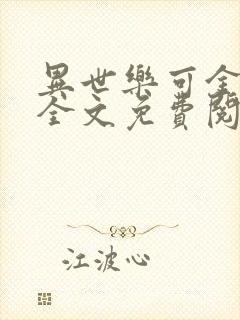 異世樂可全
全文免費閱
江波心